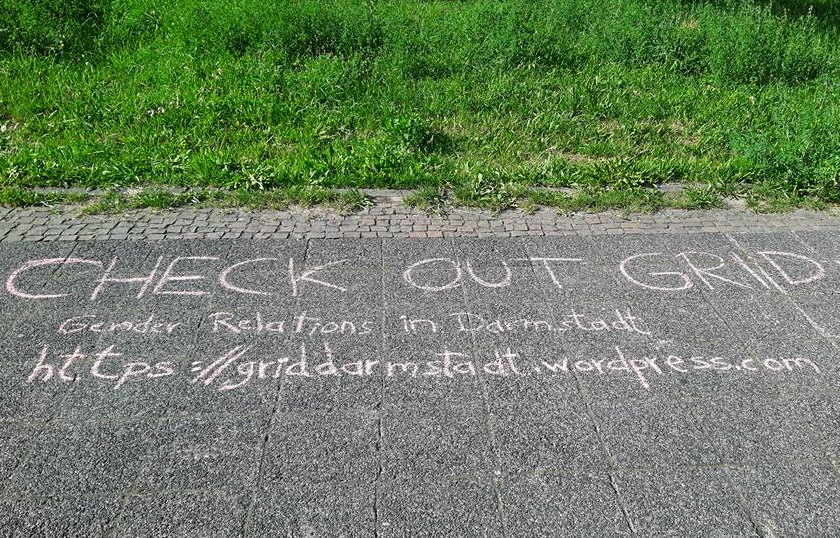 CHECK OUT GRID
Gender Relations in Darmstadt
https://griddarmstadt.wordpress.com